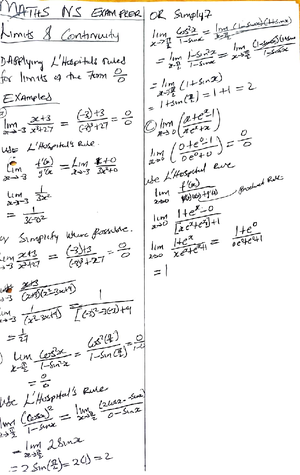 MATHS NS EXAMPREP
Limits & Continuity
1) Applying L'Hospital's rules
for limits of the form 0/0
EXAMPLES
lim x→-3 x+3/x³+27 = (-3)+3/(-3)³+27 = 0/0
Use L'Hospital's Rule.
lim x→-3 f'(x)/g'(x) = lim x→-3 1+0/3x²+0
lim x→-3 1/3x²
= 1/3(-3)²
or Simplify where possible.
lim x→-3 x+3/x³+27 = (-3)+3/(-3)³+27 = 0/0
lim x→-3 x+3/(x+3)(x²-3x+9)
lim x→-3 1/(x²-3x+9) = 1/[(-3)²-3(-3)+9]
= 1/27
lim x→π/2 cos²x/1-sinx = cos²(π/2)/1-sin(π/2) = 0/1-1
= 0/0
Use L'Hospital's Rule
lim x→π/2 (cosx)²/1-sinx = lim x→π/2 (2cosx·-sinx)/0-cosx
= lim x→π/2 2sinx
= 2sin(π/2) = 2(1) = 2
OR Simply
lim x→π/2 cos²x/1-sinx =
= lim x→π/2 1-sin²x/1-sinx = lim x→π/2 (1-sinx)(1+sinx)/1-sinx
= lim x→π/2 (1+sinx)
= 1+sin(π/2) = 1+1 = 2
c) lim x→0 (x+eˣ-1/xeˣ+x)
lim x→0 (0+e⁰-1/0e⁰+0) = 0/0
Use L'Hospital Rule
lim x→0 f'(x)/
Product Rule
lim x→0 1+eˣ-0/(xeˣ+eˣ)+1
lim x→0 1+eˣ/xeˣ+eˣ+1 = 1+e⁰/0e⁰+e⁰+1
= 1